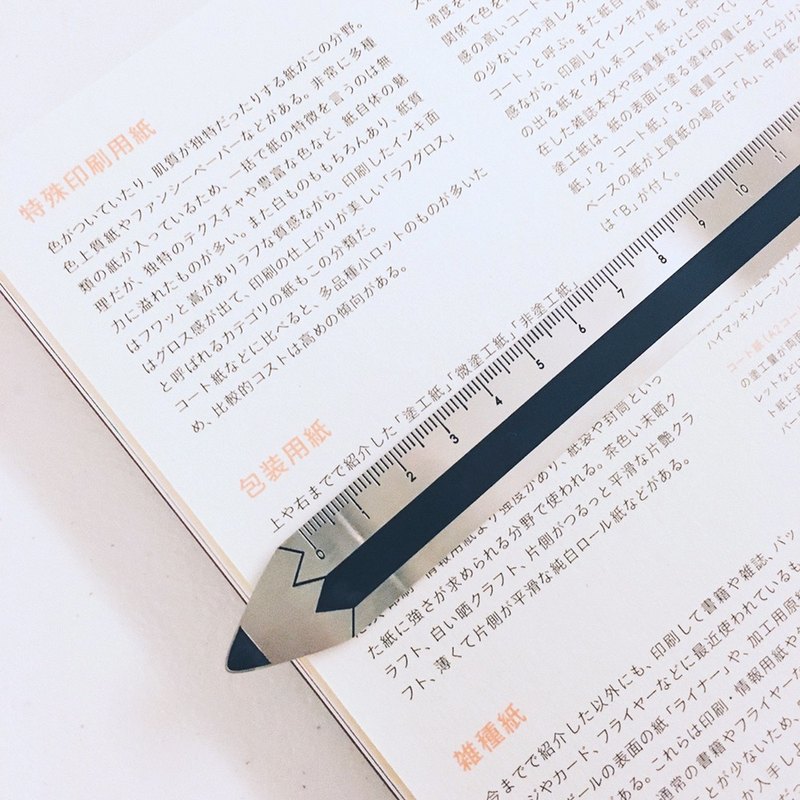 特殊印刷用紙
色がついていたり、肌質が独特だったりする紙がこの分野。
色上質紙やファンシーペーパーなどがある。非常に多種
類の紙が入っているため、一括で紙の特徴を言うのは無
理だが、独特のテクスチャや豊富な色など、紙自体の魅
力に溢れたものが多い。また白ものももちろんあり、紙質
はフワッと嵩がありラフな質感ながら、印刷したインキ面
はグロス感が出て、印刷の仕上がりが美しい「ラフグロス」
と呼ばれるカテゴリの紙もこの分類だ。
コート紙などに比べると、多品種小ロットのものが多いた
め、比較的コストは高めの傾向がある。
包装用紙
上や右までで紹介した「塗工紙」「微塗工紙」「非塗工紙」
情報用紙より強度があり、紙袋や封筒といっ
た紙に強さが求められる分野で使われる。茶色い未晒ク
ラフト、白い晒クラフト、片側がつるっと平滑な片艶クラ
フト、薄くて片側が平滑な純白ロール紙などがある。
雑種紙
今までで紹介した以外にも、印刷して書籍や雑誌、パッ
ジやカード、フライヤーなどに最近使われているも
ボールの表面の紙「ライナー」や、加工用原
ある。これらは印刷・情報用紙や
通常の書籍やフライヤーた
とが少ないため、
か入手しよ
滑度を
関係で色を
感の高いコート
の少ないつや消しダ
コート」と呼ぶ。また紙自
感ながら、印刷してインキが載
の出る紙を「ダル系コート紙」と呼
在した雑誌本文や写真集などに向いてい
塗工紙は、紙の表面に塗る塗料の量によって
紙」「2、コート紙」「3、軽量コート紙」に分け
ベースの紙が上質紙の場合は「A」、中質紙
は「B」が付く。
ハイマッキンレーシリー
コート紙（A2コー
の塗工量が両面
レットなどに
ト紙に
バー
0 1 2 3 4 5 6 7 8 9 10 11